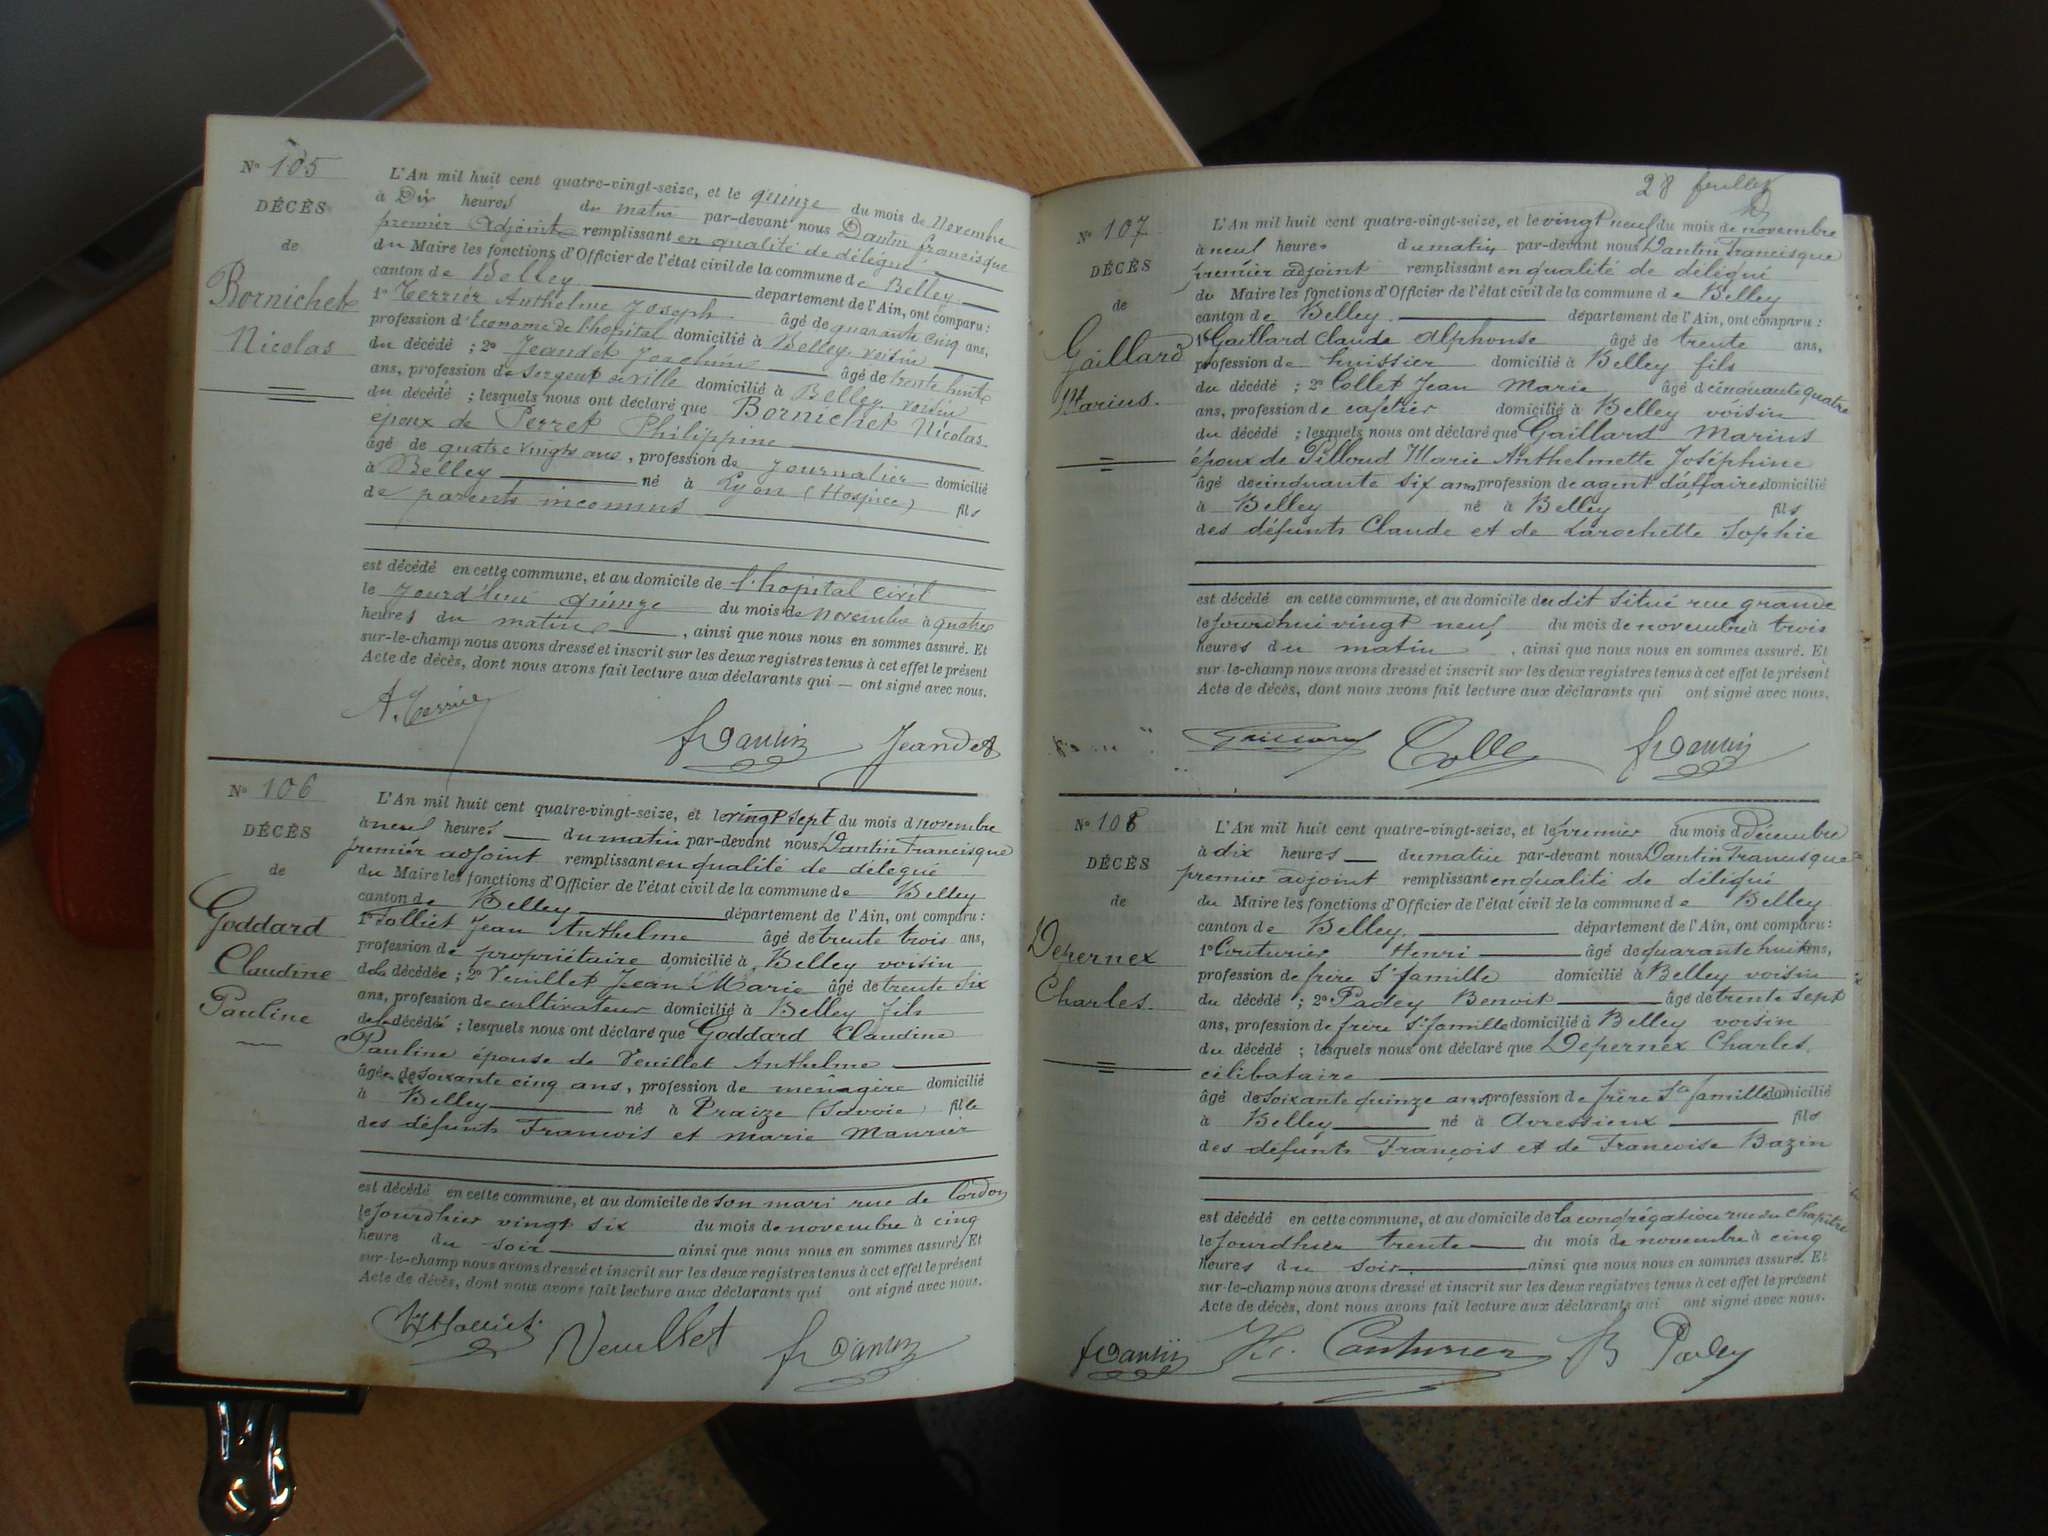 No 105
DÉCÈS
de
Bornichet
Nicolas
L'An mil huit cent quatre-vingt-seize, et le quinze du mois de Novembre
à Dix heures du matin par-devant nous Dantin francisque
premier Adjoint remplissant en qualité de délégué
du Maire les fonctions d'Officier de l'état civil de la commune de Belley
canton de Belley département de l'Ain, ont comparu :
1o Terrier Anthelme Joseph âgé de quarante cinq ans,
profession d'Econome de l'hopital domicilié à Belley voisin
du décédé ; 2o Jeandet Joachim âgé de trente huit
ans, profession de Sergent de ville domicilié à Belley voisin
du décédé ; lesquels nous ont déclaré que Bornichet Nicolas
époux de Perret Philippine
âgé de quatre vingts ans, profession de Journalier domicilié
à Belley né à Lyon (Hospice) fils
de parents inconnus
est décédé en cette commune, et au domicile de l'hopital civil
le Jourd'hui quinze du mois de novembre à quatre
heures du matin, ainsi que nous nous en sommes assuré. Et
sur-le-champ nous avons dressé et inscrit sur les deux registres tenus à cet effet le présent
Acte de décès, dont nous avons fait lecture aux déclarants qui — ont signé avec nous.
A. Terrier fr Dantin Jeandet
No 106
DÉCÈS
de
Goddard
Claudine
Pauline
L'An mil huit cent quatre-vingt-seize, et le vingt sept du mois d novembre
à neuf heures du matin par-devant nous Dantin Francisque
premier adjoint remplissant en qualité de délégué
du Maire les fonctions d'Officier de l'état civil de la commune de Belley
canton de Belley département de l'Ain, ont comparu :
1o Folliet Jean Anthelme âgé de trente trois ans,
profession de propriétaire domicilié à Belley voisin
de la décédée ; 2o Veuillet Jean Marie âgé de trente six
ans, profession de cultivateur domicilié à Belley fils
de la décédée ; lesquels nous ont déclaré que Goddard Claudine
Pauline épouse de Veuillet Anthelme
âgée de soixante cinq ans, profession de ménagère domicilié
à Belley né à Traize (Savoie) fille
des défunts Francois et marie Maurier
est décédé en cette commune, et au domicile de son mari rue de Cordon
le Jourdhier vingt six du mois de novembre à cinq
heure du soir ainsi que nous nous en sommes assuré. Et
sur-le-champ nous avons dressé et inscrit sur les deux registres tenus à cet effet le présent
Acte de décès, dont nous avons fait lecture aux déclarants qui ont signé avec nous.
Veuillet fr Dantin
28 feuillet
No 107
DÉCÈS
de
Gaillard
Marius.
L'An mil huit cent quatre-vingt-seize, et le vingt neuf du mois de novembre
à neuf heures du matin par-devant nous Dantin Francisque
premier adjoint remplissant en qualité de délégué
du Maire les fonctions d'Officier de l'état civil de la commune de Belley
canton de Belley département de l'Ain, ont comparu :
1o Gaillard Claude Alphonse âgé de trente ans,
profession de huissier domicilié à Belley fils
du décédé ; 2o Collet Jean Marie âgé de cinquante quatre
ans, profession de cafetier domicilié à Belley voisin
du décédé ; lesquels nous ont déclaré que Gaillard Marius
époux de Pilloud Marie Anthelmette Joséphine
âgé de cinquante six ans profession de agent d'affaires domicilié
à Belley né à Belley fils
des défunts Claude et de Larochette Sophie
est décédé en cette commune, et au domicile du dit situé rue grande
le Jourdhui vingt neuf du mois de novembre à trois
heures du matin, ainsi que nous nous en sommes assuré. Et
sur-le-champ nous avons dressé et inscrit sur les deux registres tenus à cet effet le présent
Acte de décès, dont nous avons fait lecture aux déclarants qui ont signé avec nous.
Gaillard Collet fr Dantin
No 108
DÉCÈS
de
Depernex
Charles.
L'An mil huit cent quatre-vingt-seize, et le premier du mois d décembre
à dix heures du matin par-devant nous Dantin Francisque
premier adjoint remplissant en qualité de délégué
du Maire les fonctions d'Officier de l'état civil de la commune de Belley
canton de Belley. département de l'Ain, ont comparu :
1o Couturier Henri âgé de quarante huit ans,
profession de frère Ste famille domicilié à Belley voisin
du décédé ; 2o Padey Benoit âgé de trente sept
ans, profession de frère Ste famille domicilié à Belley voisin
du décédé ; lesquels nous ont déclaré que Depernex Charles.
célibataire
âgé de soixante quinze ans profession de frère Ste famille domicilié
à Belley né à Avressieux fils
des défunts François et de Francoise Bazin
est décédé en cette commune, et au domicile de la congrégation rue du chapitre
le Jourdhier trente du mois de novembre à cinq
heures du soir ainsi que nous nous en sommes assuré. Et
sur-le-champ nous avons dressé et inscrit sur les deux registres tenus à cet effet le présent
Acte de décès, dont nous avons fait lecture aux déclarants qui ont signé avec nous.
fr Dantin H. Couturier B Padey